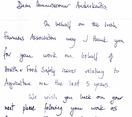 Dear Commissioner Andriukaitis
On behalf of the Irish
Farmers Association may I thank you
for your work on behalf of
Health & Food Safety issues relating to
Agriculture over the last 5 years.
We wish you luck on your
next phase following your work as